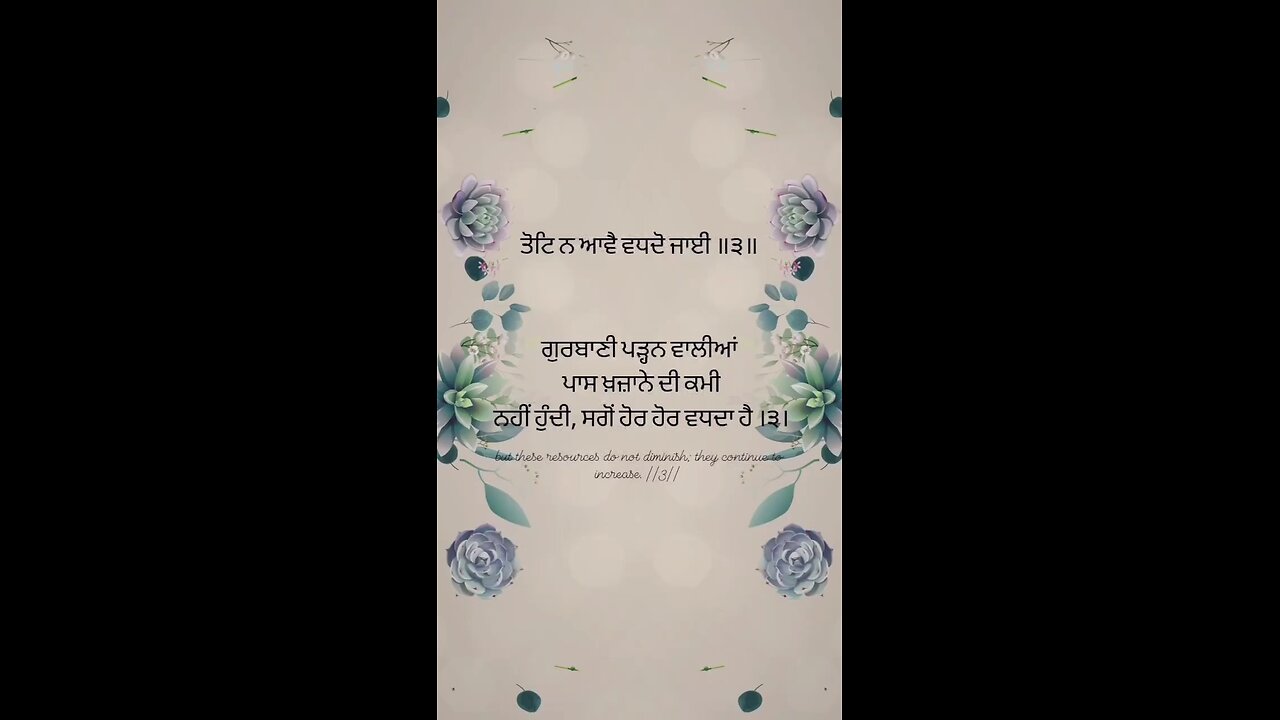 ਤੋਟਿ ਨ ਆਵੈ ਵਧਦੋ ਜਾਈ ॥੩॥
ਗੁਰਬਾਣੀ ਪੜ੍ਹਨ ਵਾਲੀਆਂ
ਪਾਸ ਖ਼ਜ਼ਾਨੇ ਦੀ ਕਮੀ
ਨਹੀਂ ਹੁੰਦੀ, ਸਗੋਂ ਹੋਰ ਹੋਰ ਵਧਦਾ ਹੈ ।੩।
but these resources do not diminish; they continue to
increase. ||3||